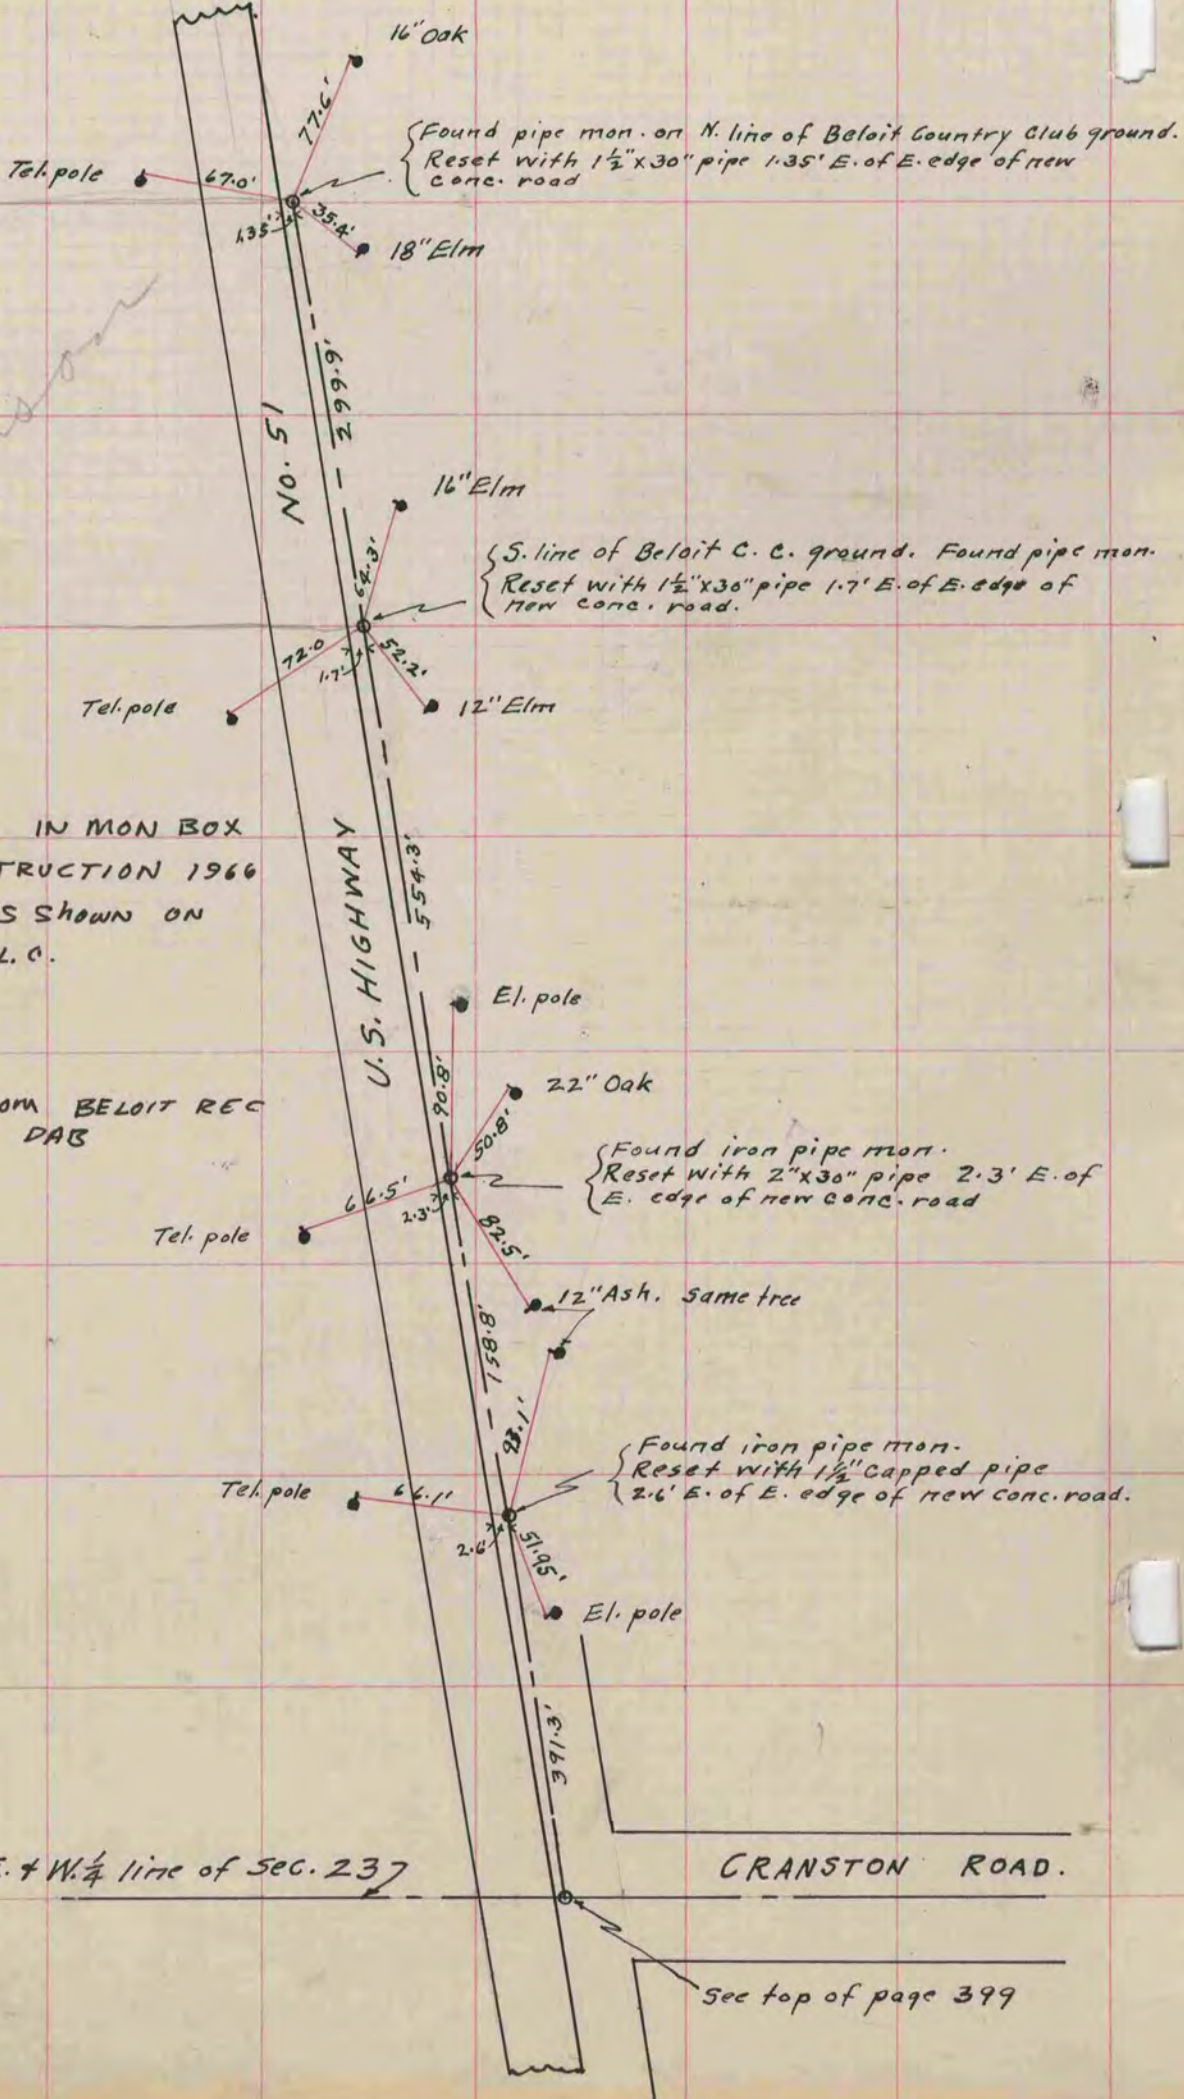 16" Oak
77.6'
{Found pipe mon. on N. line of Beloit Country Club ground.
Reset with 1½"x30" pipe 1.35' E. of E. edge of new
conc. road
Tel. pole
67.0'
1.35'
35.4'
18" Elm
299.9'
No. 51
16" Elm
{S. line of Beloit C. C. ground. Found pipe mon.
Reset with 1½"x30" pipe 1.7' E. of E. edge of
new conc. road.
72.0
1.7'
52.2'
Tel. pole
12" Elm
IN MON BOX
TRUCTION 1966
S Shown ON
L. C.
U.S. HIGHWAY
554.3'
El. pole
90.8'
22" Oak
50.8'
om BELOIT REC
DAB
{Found iron pipe mon.
Reset with 2"x30" pipe 2.3' E. of
E. edge of new conc. road
66.5'
2.3'
82.5'
Tel. pole
12" Ash. Same tree
158.8'
{Found iron pipe mon.
Reset with 1½" Capped pipe
2.6' E. of E. edge of new conc. road.
Tel. pole
66.1'
2.6'
51.95'
El. pole
391.3'
. & W. ¼ line of Sec. 23
CRANSTON ROAD.
See top of page 399